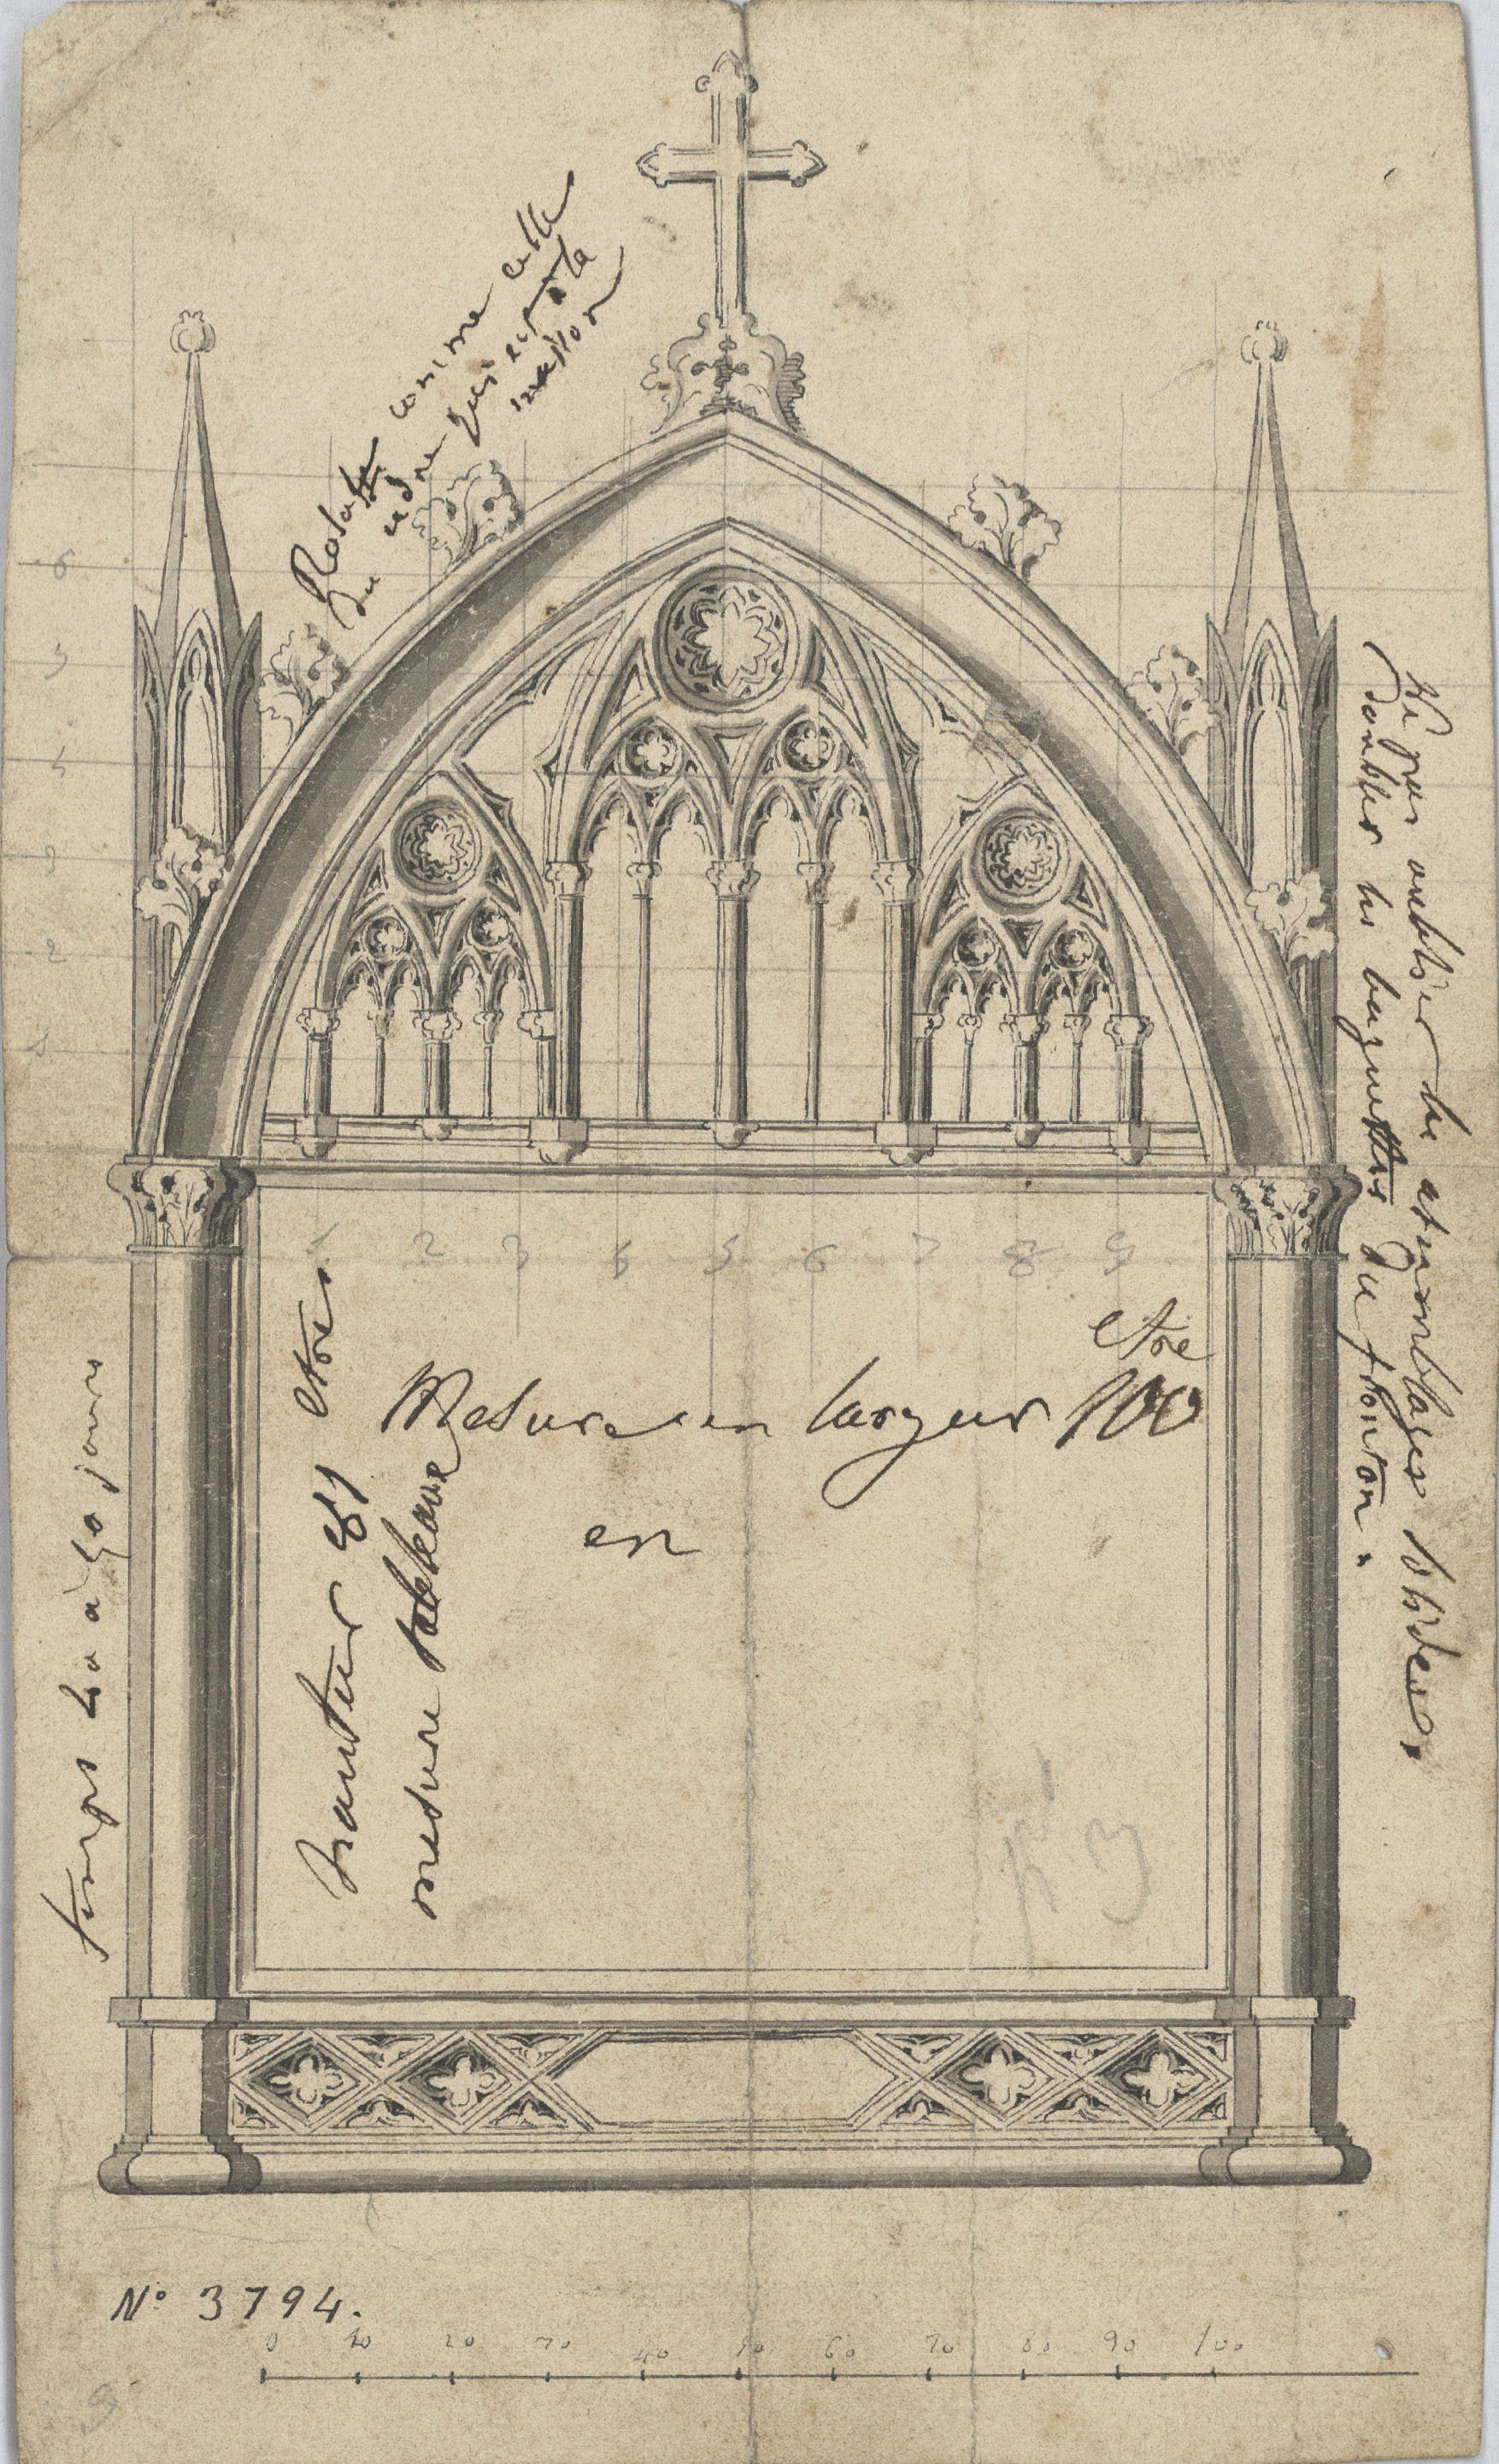 Rosace comme celle
du cadre qui est à la
maison
Ne pas oublier les assemblages solides,
doubler les baguettes du fronton.
6
5
4
3
2
1
1 2 3 4 5 6 7 8 9
etre
Mesure en largeur 100
en
hauteur et
mesure tableaux
temps à 40 jours
N° 3794.
0 10 20 30 40 50 60 70 80 90 100